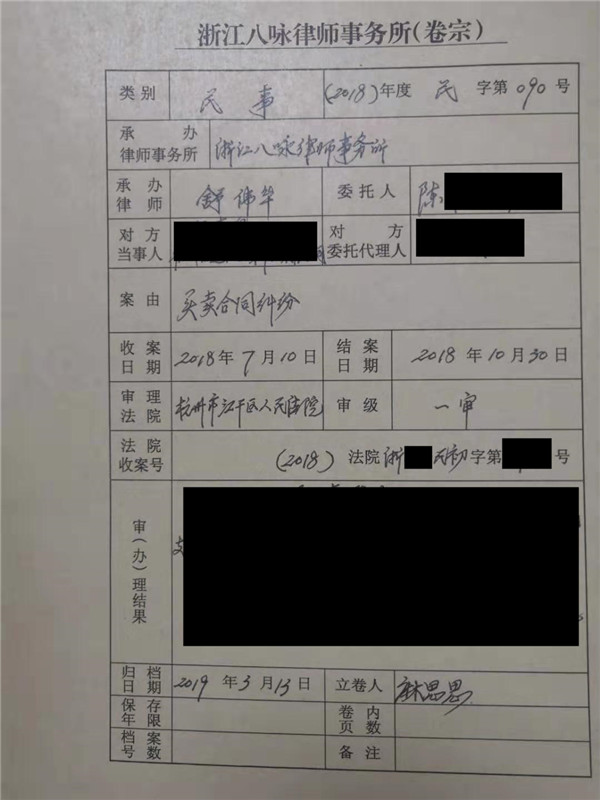 浙江八咏律师事务所(卷宗)
类别 民事 (2018)年度 民 字第 090 号
承办律师事务所 浙江八咏律师事务所
承办律师 舒伟华 委托人 陈
对方当事人 对方委托代理人
案由 买卖合同纠纷
收案日期 2018年7月10日 结案日期 2018年10月30日
审理法院 杭州市江干区人民法院 审级 一审
法院收案号 (2018) 法院 浙 民初 字第 号
审(办)理结果
归档日期 2019年3月13日 立卷人 麻思思
保存年限 卷内页数
档案号数 备注